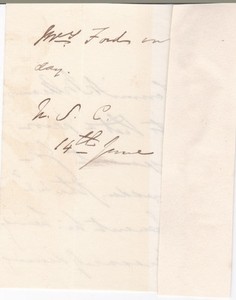 Mrs Fords on
day.
N. S. C.
14th June